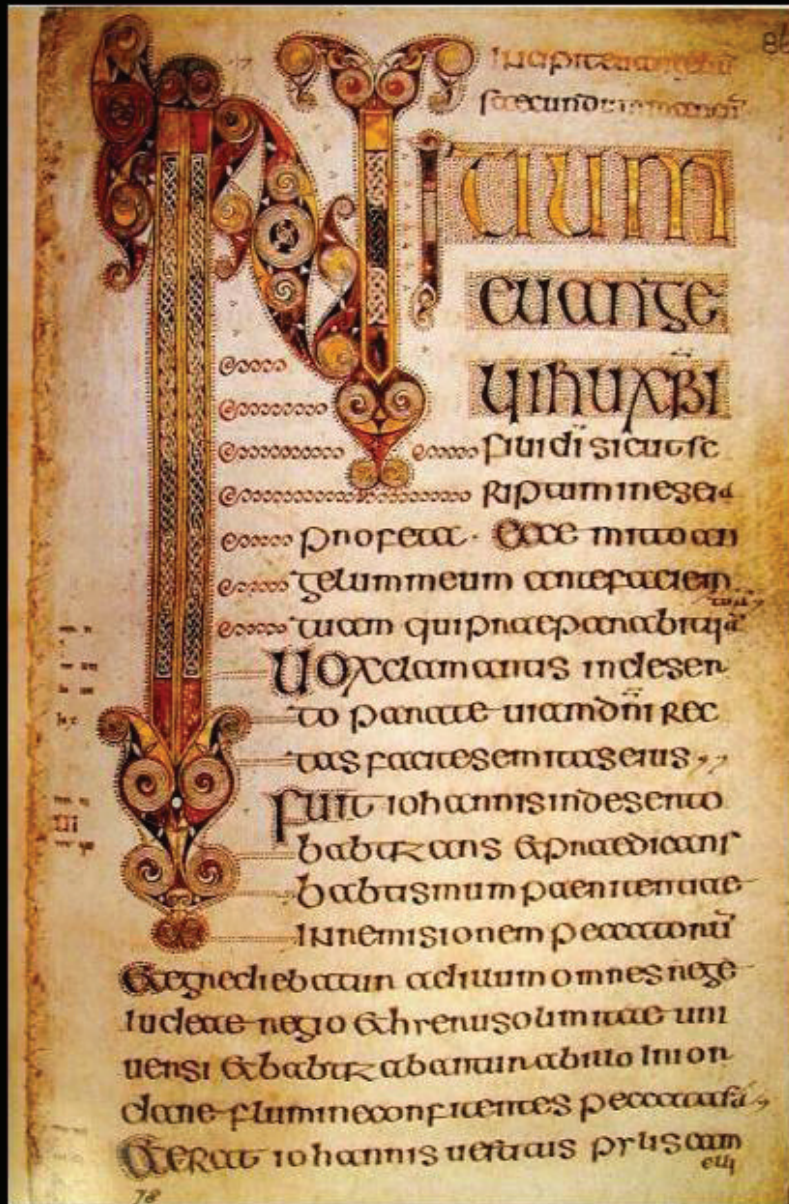 86
Incipit euangeliū
secundum marcū
INITIUM
euange
lii ihu xpi
fili dī sicut sc
riptum in eseia
profeta · Ecce mitto an
gelum meum ante faciem
tuam qui praeparabit uiā
tuā
Uox clamantis in deser
to parate uiam dn̄i rec
tas facite semitas eius
Fuit iohannis in deserto
babtizans & praedicans
babtismum paenitentiae
in remisionem peccatorū
& egrediebatur ad illum omnes rege
iudeae regio & hrerusolimitae uni
uersi & babtizabantur ab illo in ior
dane flumine confitentes peccata sā
& ERat iohannis uestitus pylis cam
elli
78